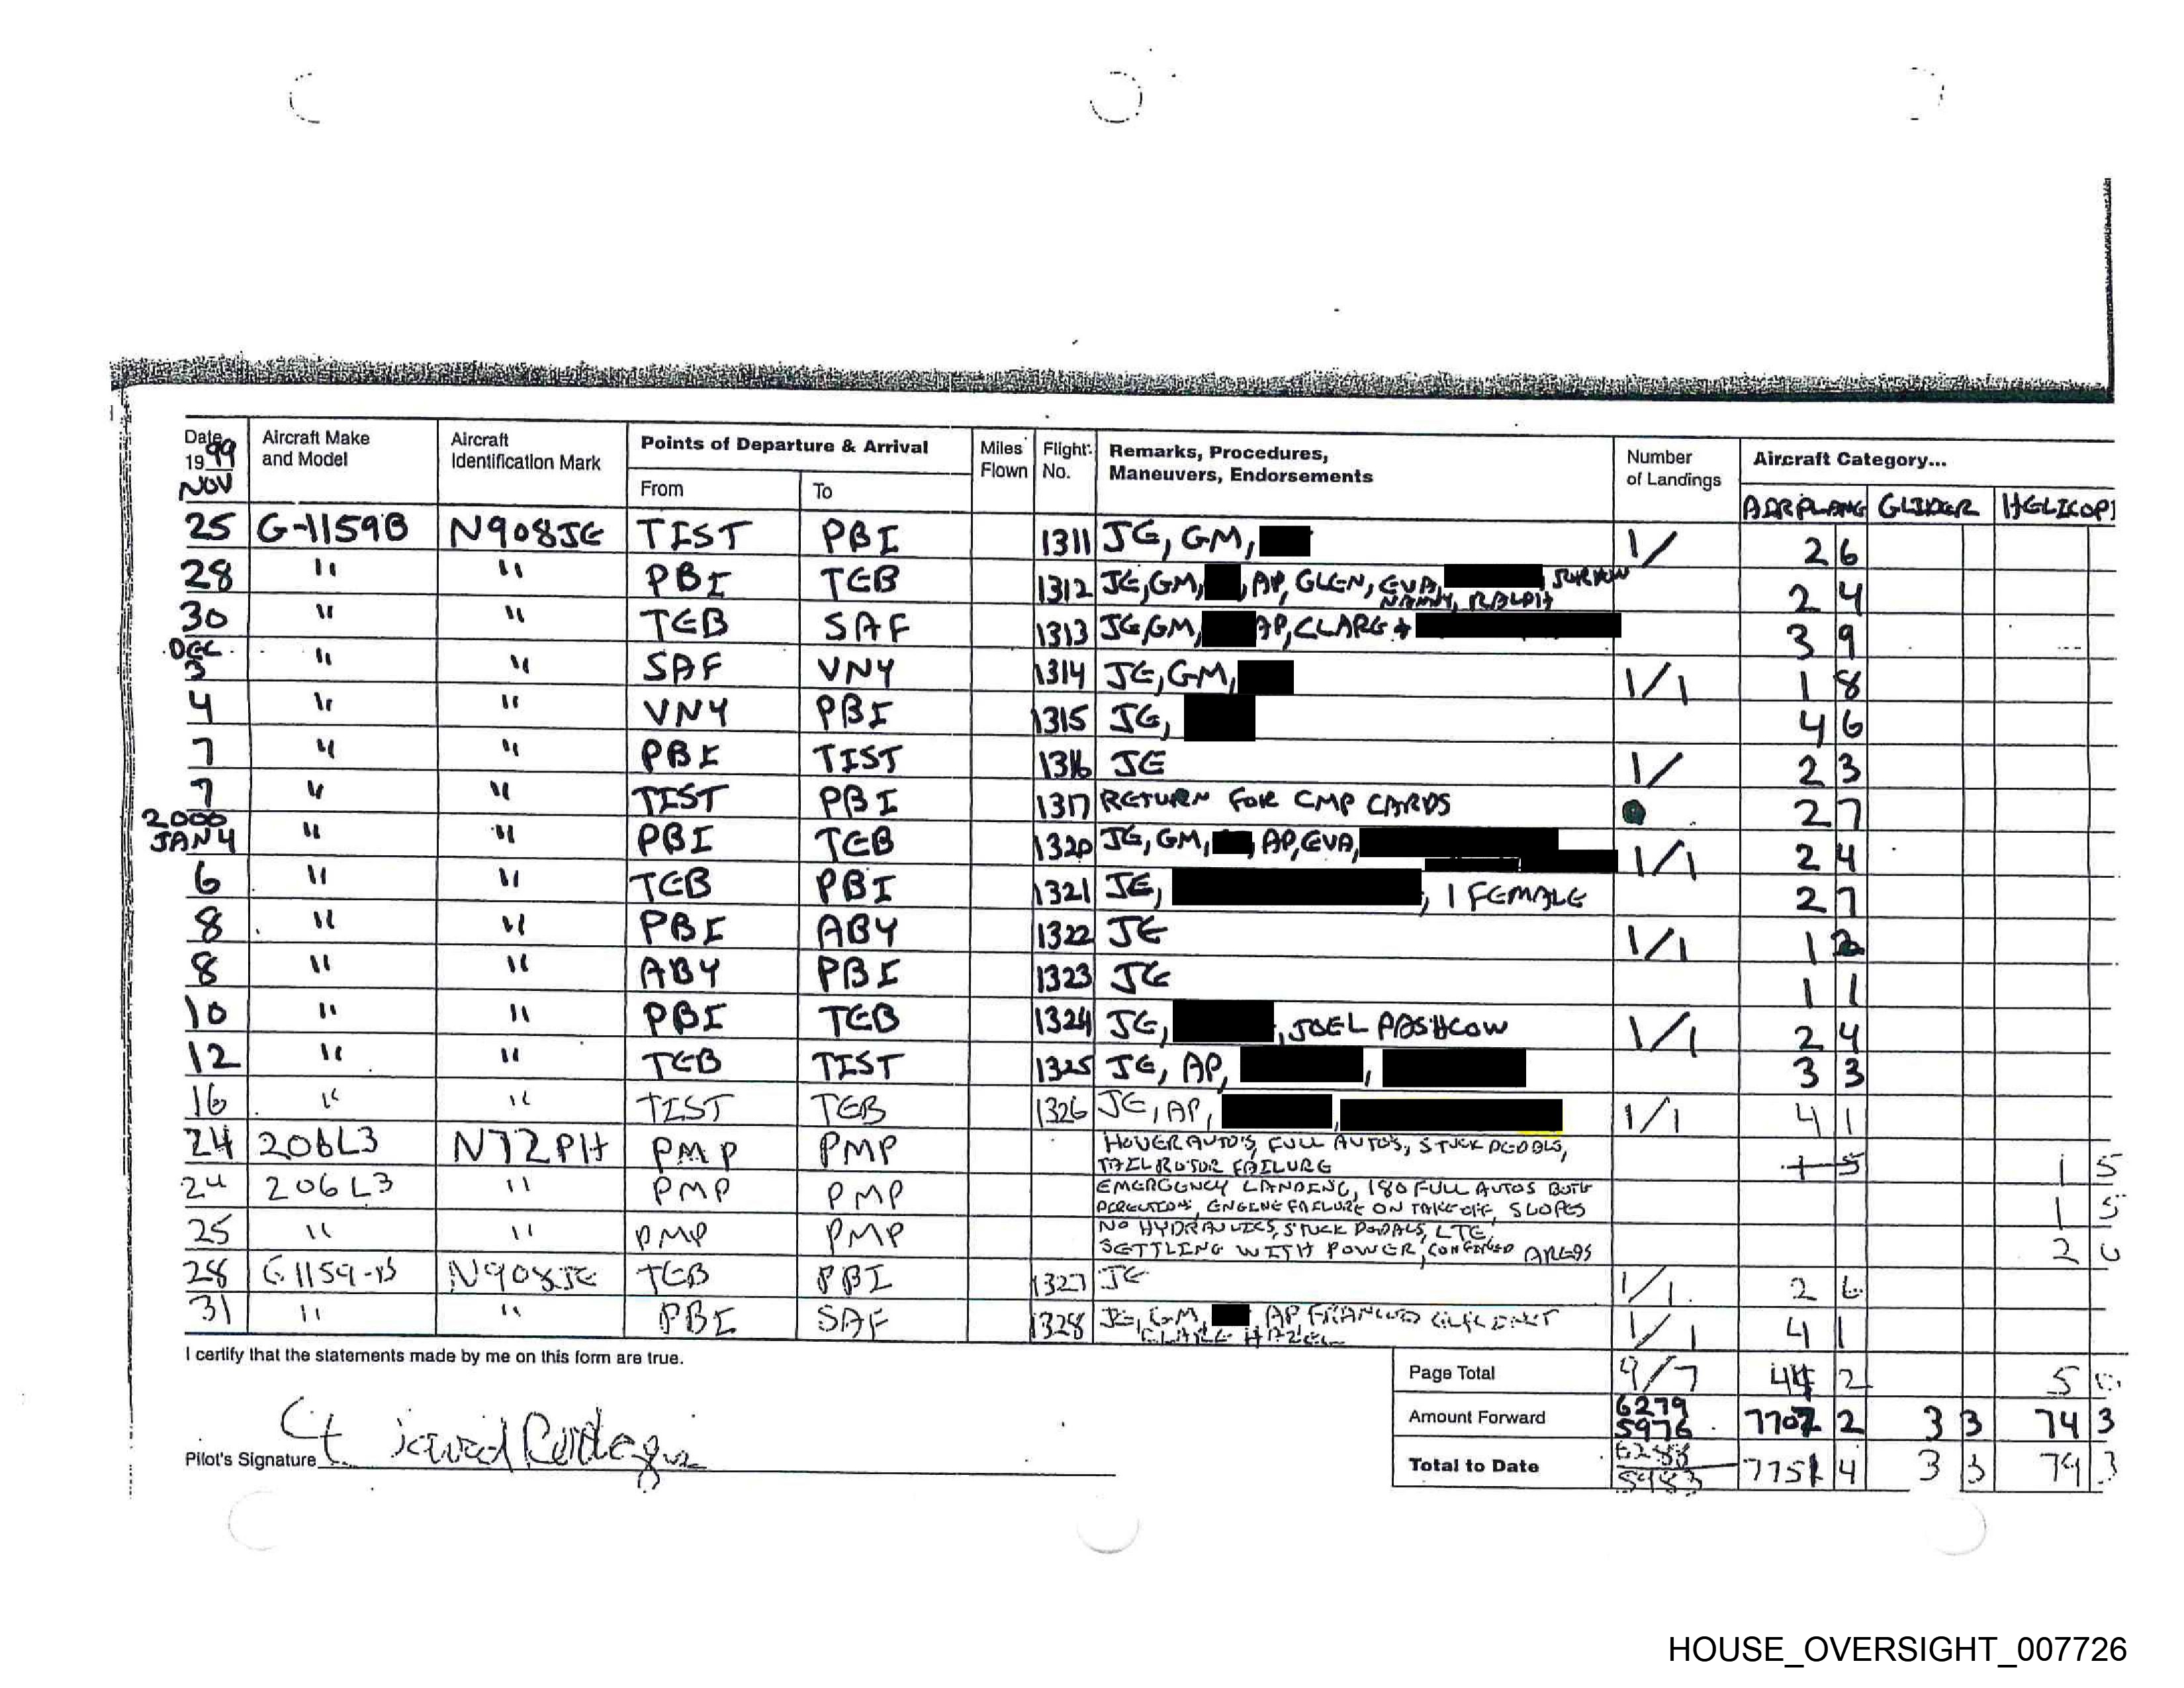 Date 1999 Aircraft Make and Model Aircraft Identification Mark Points of Departure & Arrival Miles Flown Flight No. Remarks, Procedures, Maneuvers, Endorsements Number of Landings Aircraft Category...
NOV From To AIRPLANE GLIDER HELICOPT
25 G-1159B N908JE TIST PBI 1311 JE, GM, 1/ 2 6
28 " " PBI TEB 1312 JE, GM, , AP, GLEN, EVA, , NANNY, RALPH 2 4
30 " " TEB SAF 1313 JE, GM, AP, CLARE + 3 9
DEC 3 " " SAF VNY 1314 JE, GM, 1/1 1 8
4 " " VNY PBI 1315 JE, 4 6
7 " " PBI TIST 1316 JE 1/ 2 3
7 " " TIST PBI 1317 RETURN FOR CMP CARDS 2 7
2000 JAN 4 " " PBI TEB 1320 JE, GM, , AP, EVA, 1/1 2 4
6 " " TEB PBI 1321 JE, , 1 FEMALE 2 7
8 " " PBI ABY 1322 JE 1/1 1
8 " " ABY PBI 1323 JE 1 1
10 " " PBI TEB 1324 JE, , JOEL PASHCOW 1/1 2 4
12 " " TEB TIST 1325 JE, AP, , 3 3
16 " " TIST TEB 1326 JE, AP, , 1/1 4 1
24 206L3 N72PH PMP PMP HOVER AUTO'S, FULL AUTO'S, STUCK PEDALS, TAIL ROTOR FAILURE 1 5 1 5
24 206L3 " PMP PMP EMERGENCY LANDING, 180 FULL AUTOS BOTH DIRECTIONS, ENGINE FAILURE ON TAKE OFF, SLOPES 1 5
25 " " PMP PMP NO HYDRAULICS, STUCK PEDALS, LTE, SETTLING WITH POWER, CONFINED AREAS 2 0
28 G-1159-B N908JE TEB PBI 1327 JE 1/1 2 6
31 " " PBI SAF 1328 JE, GM, AP, CLARE HAZEL 1/1 4 1
I certify that the statements made by me on this form are true.
Page Total 9/7 44 2 5 0
Amount Forward 6279 5976 7707 2 3 3 74 3
Pilot's Signature Total to Date 6288 5983 7751 4 3 3 79 3
HOUSE_OVERSIGHT_007726